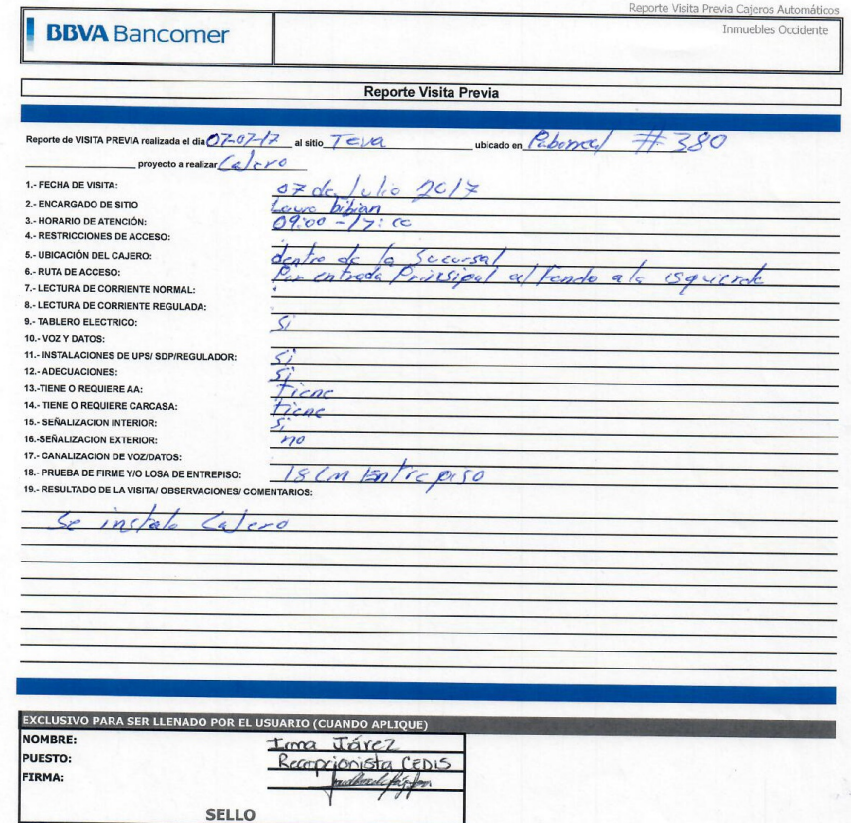 Reporte Visita Previa Cajeros Automáticos
BBVA Bancomer
Inmuebles Occidente
Reporte Visita Previa
Reporte de VISITA PREVIA realizada el día 07-07-17 al sitio Teva ubicado en #380
proyecto a realizar Cajero
1.- FECHA DE VISITA: 07 de Julio 2017
2.- ENCARGADO DE SITIO Lauro bibian
3.- HORARIO DE ATENCIÓN: 09:00 - 17:00
4.- RESTRICCIONES DE ACCESO:
5.- UBICACIÓN DEL CAJERO: dentro de la Sucursal
6.- RUTA DE ACCESO: Por entrada Prinsipal al fondo a la isquierda
7.- LECTURA DE CORRIENTE NORMAL:
8.- LECTURA DE CORRIENTE REGULADA:
9.- TABLERO ELECTRICO: Si
10.- VOZ Y DATOS:
11.- INSTALACIONES DE UPS/ SDP/REGULADOR: Si
12.- ADECUACIONES: Si
13.-TIENE O REQUIERE AA: tiene
14.- TIENE O REQUIERE CARCASA: tiene
15.- SEÑALIZACION INTERIOR: Si
16.-SEÑALIZACION EXTERIOR: no
17.- CANALIZACION DE VOZ/DATOS:
18.- PRUEBA DE FIRME Y/O LOSA DE ENTREPISO: 18 Cm Entrepiso
19.- RESULTADO DE LA VISITA/ OBSERVACIONES/ COMENTARIOS:
Se instalo Cajero
EXCLUSIVO PARA SER LLENADO POR EL USUARIO (CUANDO APLIQUE)
NOMBRE: Irma Járez
PUESTO: Recepcionista CEDIS
FIRMA:
SELLO